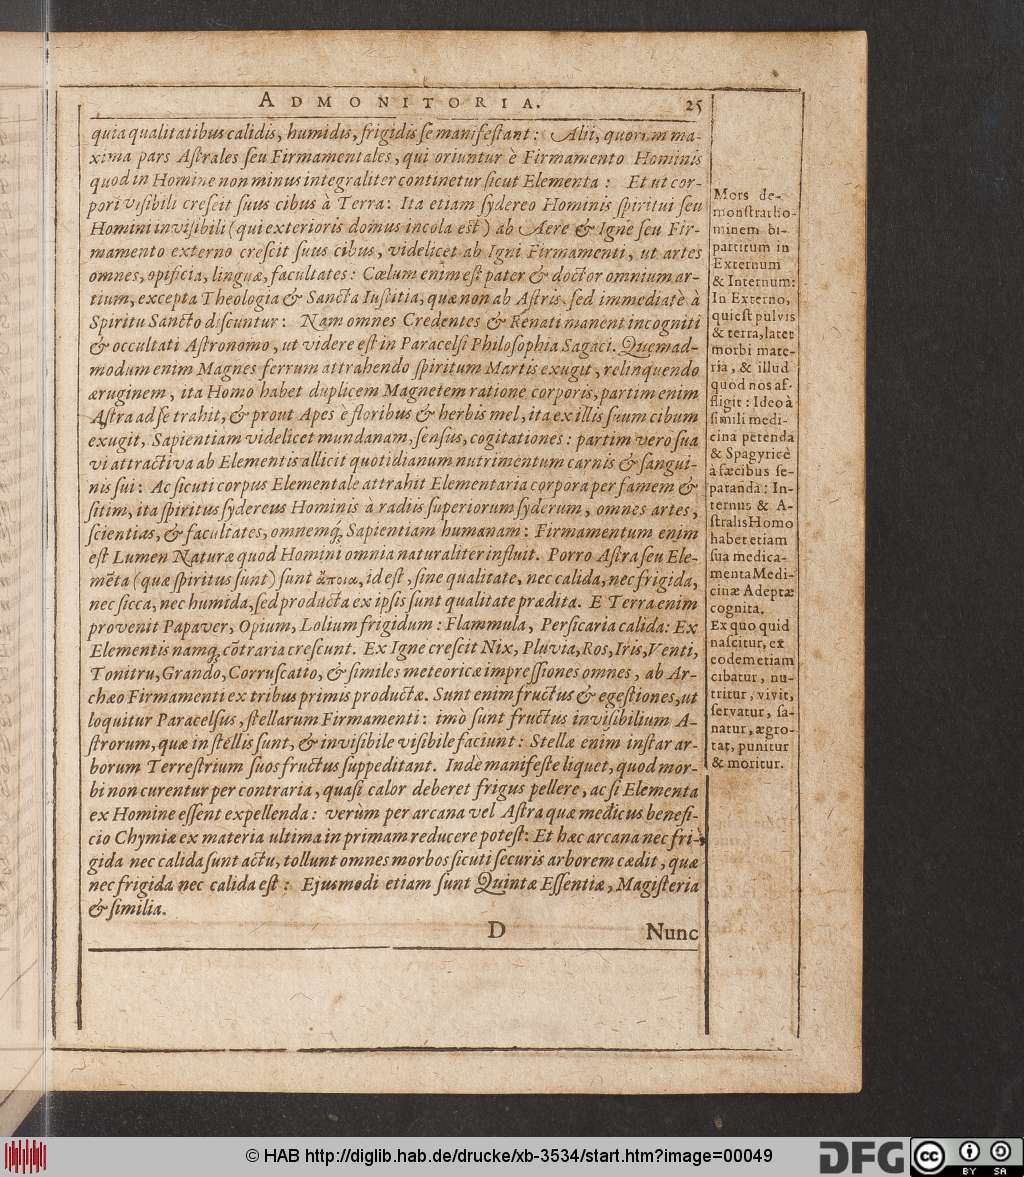 ADMONITORIA. 25
quia qualitatibus calidis, humidis, frigidis se manifestant: Alii, quorum ma-
xima pars Astrales seu Firmamentales, qui oriuntur è Firmamento Hominis
quod in Homine non minus integraliter continetur sicut Elementa: Et ut cor-
pori visibili crescit suus cibus à Terra: Ita etiam sydereo Hominis spiritui seu
Homini invisibili (qui exterioris domus incola est) ab Aere & Igne seu Fir-
mamento externo crescit suus cibus, videlicet ab Igni Firmamenti, ut artes
omnes, opificia, linguæ, facultates: Cœlum enim est pater & doctor omnium ar-
tium, excepta Theologia & Sancta Iustitia, quæ non ab Astris sed immediatè à
Spiritu Sancto discuntur: Nam omnes Credentes & Renati manent incogniti
& occultati Astronomo, ut videre est in Paracelsi Philosophia Sagaci. Quemad-
modum enim Magnes ferrum attrahendo spiritum Martis exugit, relinquendo
æruginem, ita Homo habet duplicem Magnetem ratione corporis, partim enim
Astra ad se trahit, & prout Apes è floribus & herbis mel, ita ex illis suum cibum
exugit, Sapientiam videlicet mundanam, sensus, cogitationes: partim vero sua
vi attractiva ab Elementis allicit quotidianum nutrimentum carnis & sangui-
nis sui: Ac sicuti corpus Elementale attrahit Elementaria corpora per famem &
sitim, ita spiritus sydereus Hominis a radiis superiorum syderum, omnes artes,
scientias, & facultates, omnemq́; Sapientiam humanam: Firmamentum enim
est Lumen Naturæ quod Homini omnia naturaliter influit. Porro Astra seu Ele-
mēta (quæ spiritus sunt) sunt ἄποια, id est, sine qualitate, nec calida, nec frigida,
nec sicca, nec humida, sed producta ex ipsis sunt qualitate prædita. E Terra enim
provenit Papaver, Opium, Lolium frigidum: Flammula, Persicaria calida: Ex
Elementis namq; cōtraria crescunt. Ex Igne crescit Nix, Pluvia, Ros, Iris, Venti,
Tonitru, Grando, Corruscatio, & similes meteoricæ impressiones omnes, ab Ar-
chæo Firmamenti ex tribus primis productæ. Sunt enim fructus & egestiones, ut
loquitur Paracelsus, stellarum Firmamenti: imò sunt fructus invisibilium A-
strorum, quæ in stellis sunt, & invisibile visibile faciunt: Stellæ enim instar ar-
borum Terrestrium suos fructus suppeditant. Indè manifeste liquet, quod mor-
bi non curentur per contraria, quasi calor deberet frigus pellere, ac si Elementa
ex Homine essent expellenda: verùm per arcana vel Astra quæ medicus benefi-
cio Chymiæ ex materia ultima in primam reducere potest: Et hæc arcana nec fri-
gida nec calida sunt actu, tollunt omnes morbos sicuti securis arborem cædit, quæ
nec frigida nec calida est: Ejusmodi etiam sunt Quintæ Essentiæ, Magisteria
& similia.
D Nunc
Mors de-
monstrat ho-
minem bi-
partitum in
Externum
& Internum:
In Externo,
qui est pulvis
& terra, latet
morbi mate-
ria, & illud
quod nos af-
fligit: Ideo à
simili medi-
cina petenda
& Spagyricè
à fæcibus se-
paranda: In-
ternus & A-
stralis Homo
habet etiam
sua medica-
menta Medi-
cinæ Adeptæ
cognita.
Ex quo quid
nascitur, ex
eodem etiam
cibatur, nu-
tritur, vivit,
servatur, sa-
natur, ægro-
tat, punitur
& moritur.
© HAB http://diglib.hab.de/drucke/xb-3534/start.htm?image=00049
DFG
cc BY SA